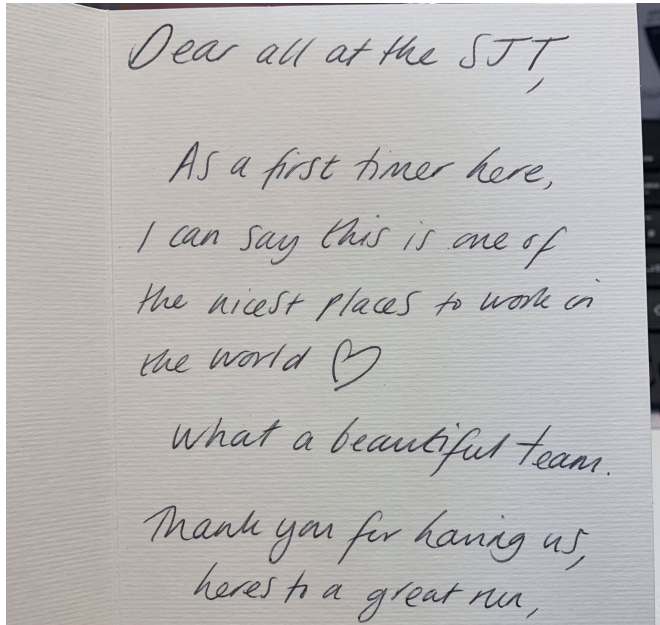 Dear all at the SJT,
As a first timer here,
I can say this is one of
the nicest places to work in
the world ♡
What a beautiful team.
Thank you for having us,
heres to a great run,